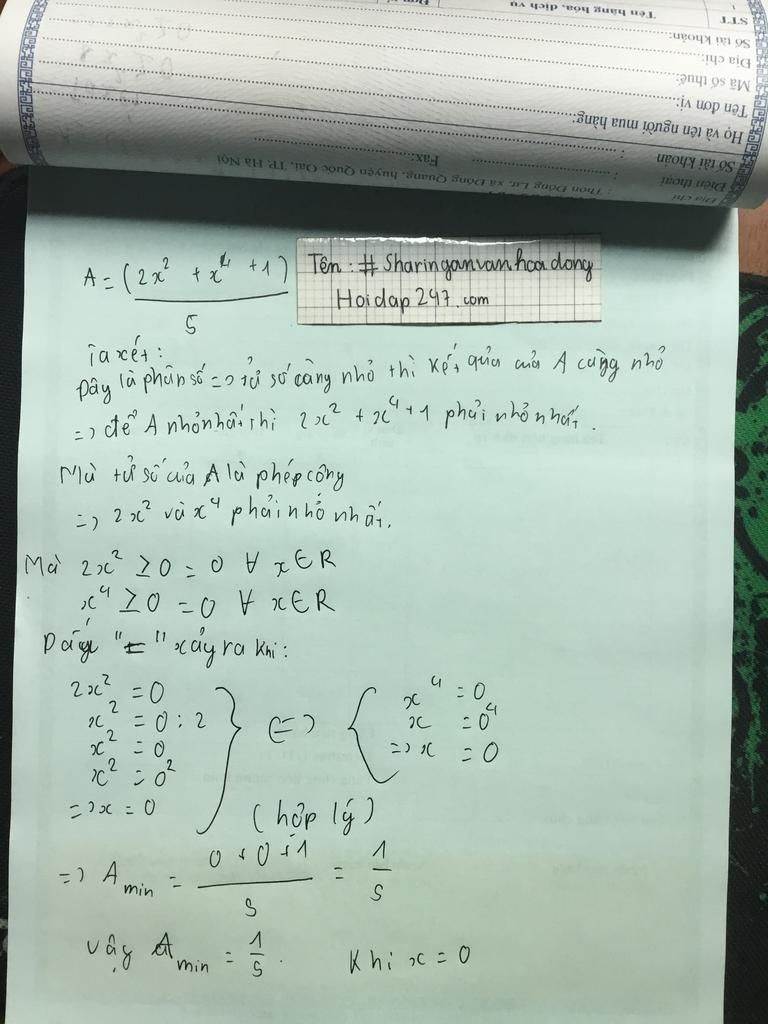 STT
Tên hàng hóa, dịch vụ
Số tài khoản:
Địa chỉ:
Mã số thuế:
Tên đơn vị:
Họ và tên người mua hàng:
Số tài khoản :
Điện thoại Fax:
Địa chỉ : Thôn Đồng Lư, xã Đồng Quang, huyện Quốc Oai, TP. Hà Nội
A = (2x² + x⁴ + 1)
5
Tên : # Sharinganvanhoadong
Hoidap247.com
Ta xét :
Đây là phân số => tử số càng nhỏ thì kết quả của A càng nhỏ
=> để A nhỏ nhất thì 2x² + x⁴ + 1 phải nhỏ nhất .
Mà tử số của A là phép cộng
=> 2x² và x⁴ phải nhỏ nhất.
Mà 2x² ≥ 0 = 0 ∀ x ∈ R
x⁴ ≥ 0 = 0 ∀ x ∈ R
Dấu "=" xảy ra khi :
2x² = 0
x² = 0 : 2
x² = 0
x² = 0²
=> x = 0
} <=> {
x⁴ = 0
x = 0⁴
=> x = 0
(hợp lý)
=> A min = 0 + 0 + 1 / 5 = 1 / 5
Vậy A min = 1 / 5 . Khi x = 0